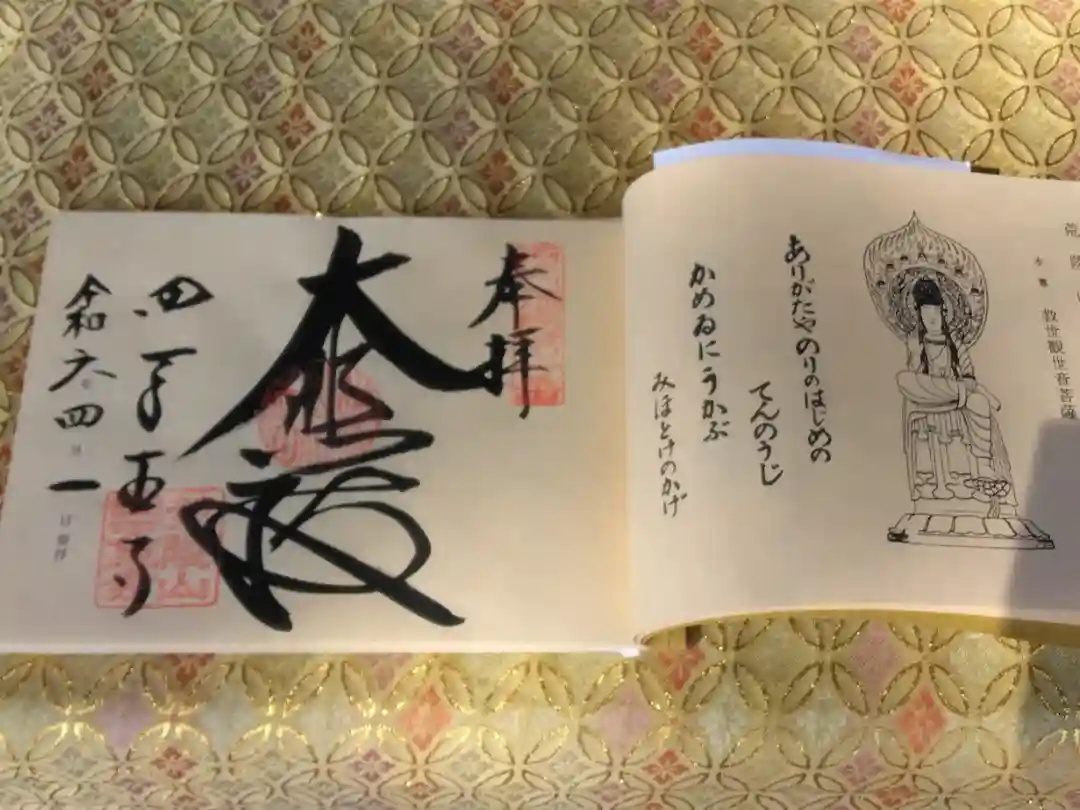 本尊 救世観世音菩薩
ありがたやのりのはじめの
てんのうじ
かめゐにうかぶ
みほとけのかげ
奉拝
大悲殿
四天王寺
令和六年四月一日